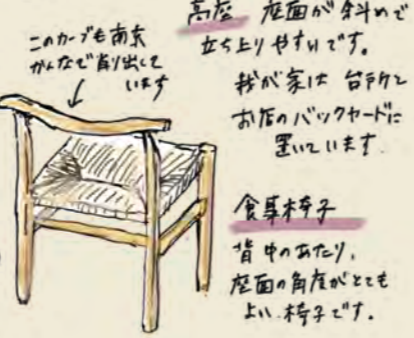 このカーブも南京
かんなで削り出して
います
高座 座面が斜めで
立ち上りやすいです。
我が家は 台所と
お店のバックヤードに
置いています.
食事椅子
背中のあたり、
座面の角度がとても
よい椅子です。